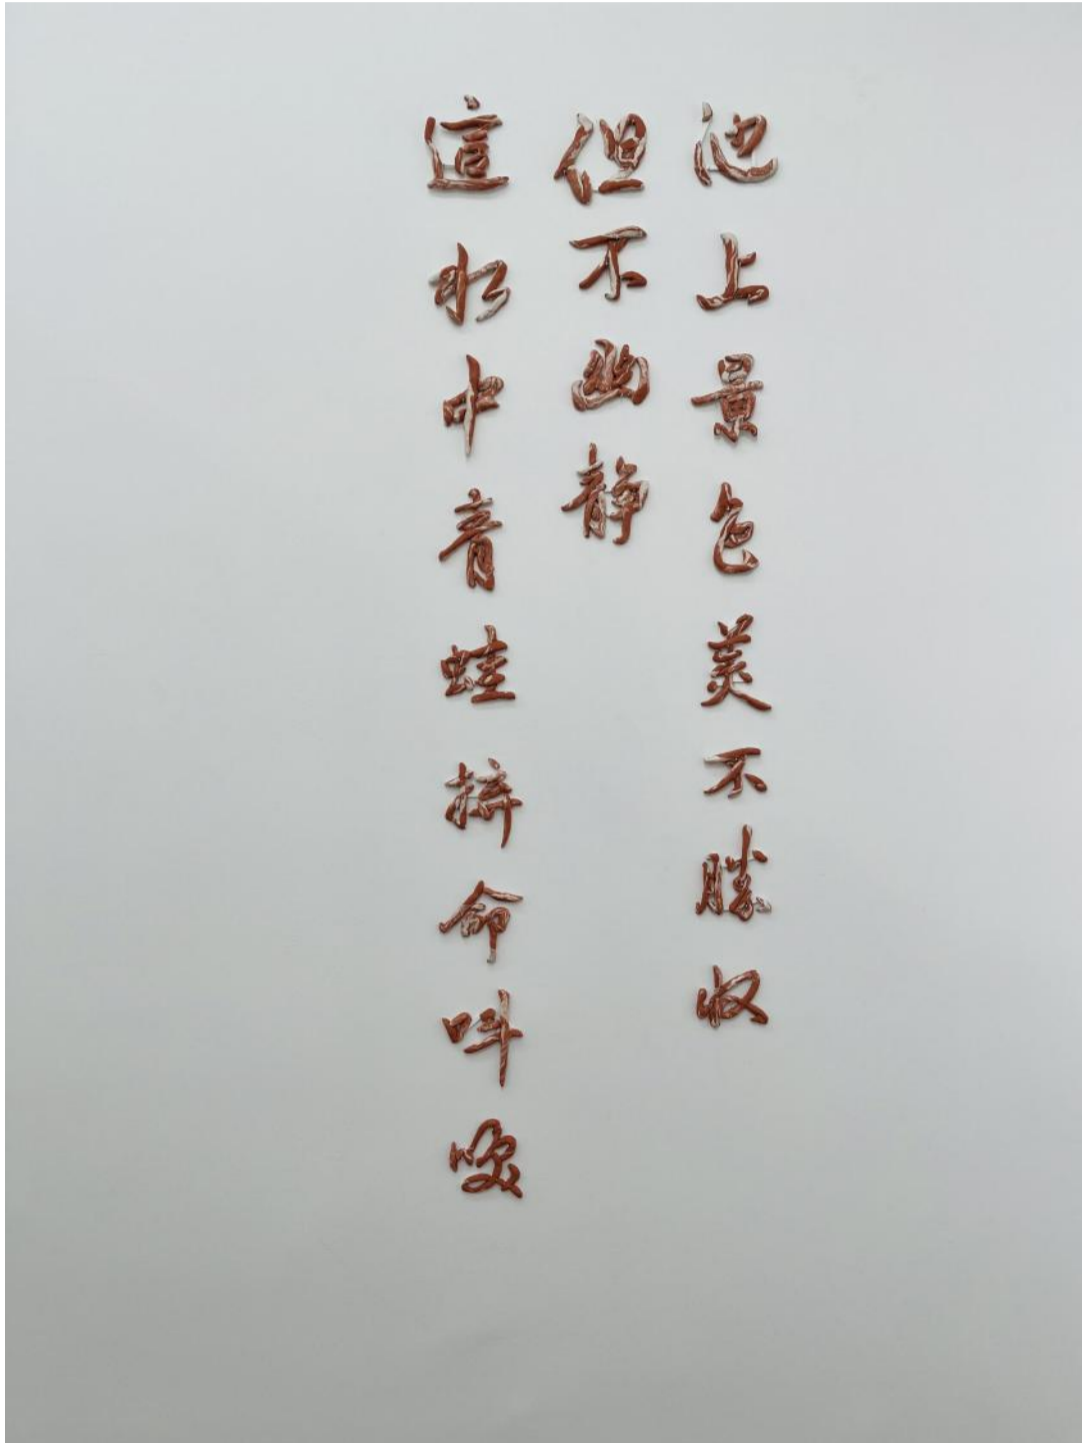 池上景色美不勝收
但不幽静
這水中青蛙拼命叫唤